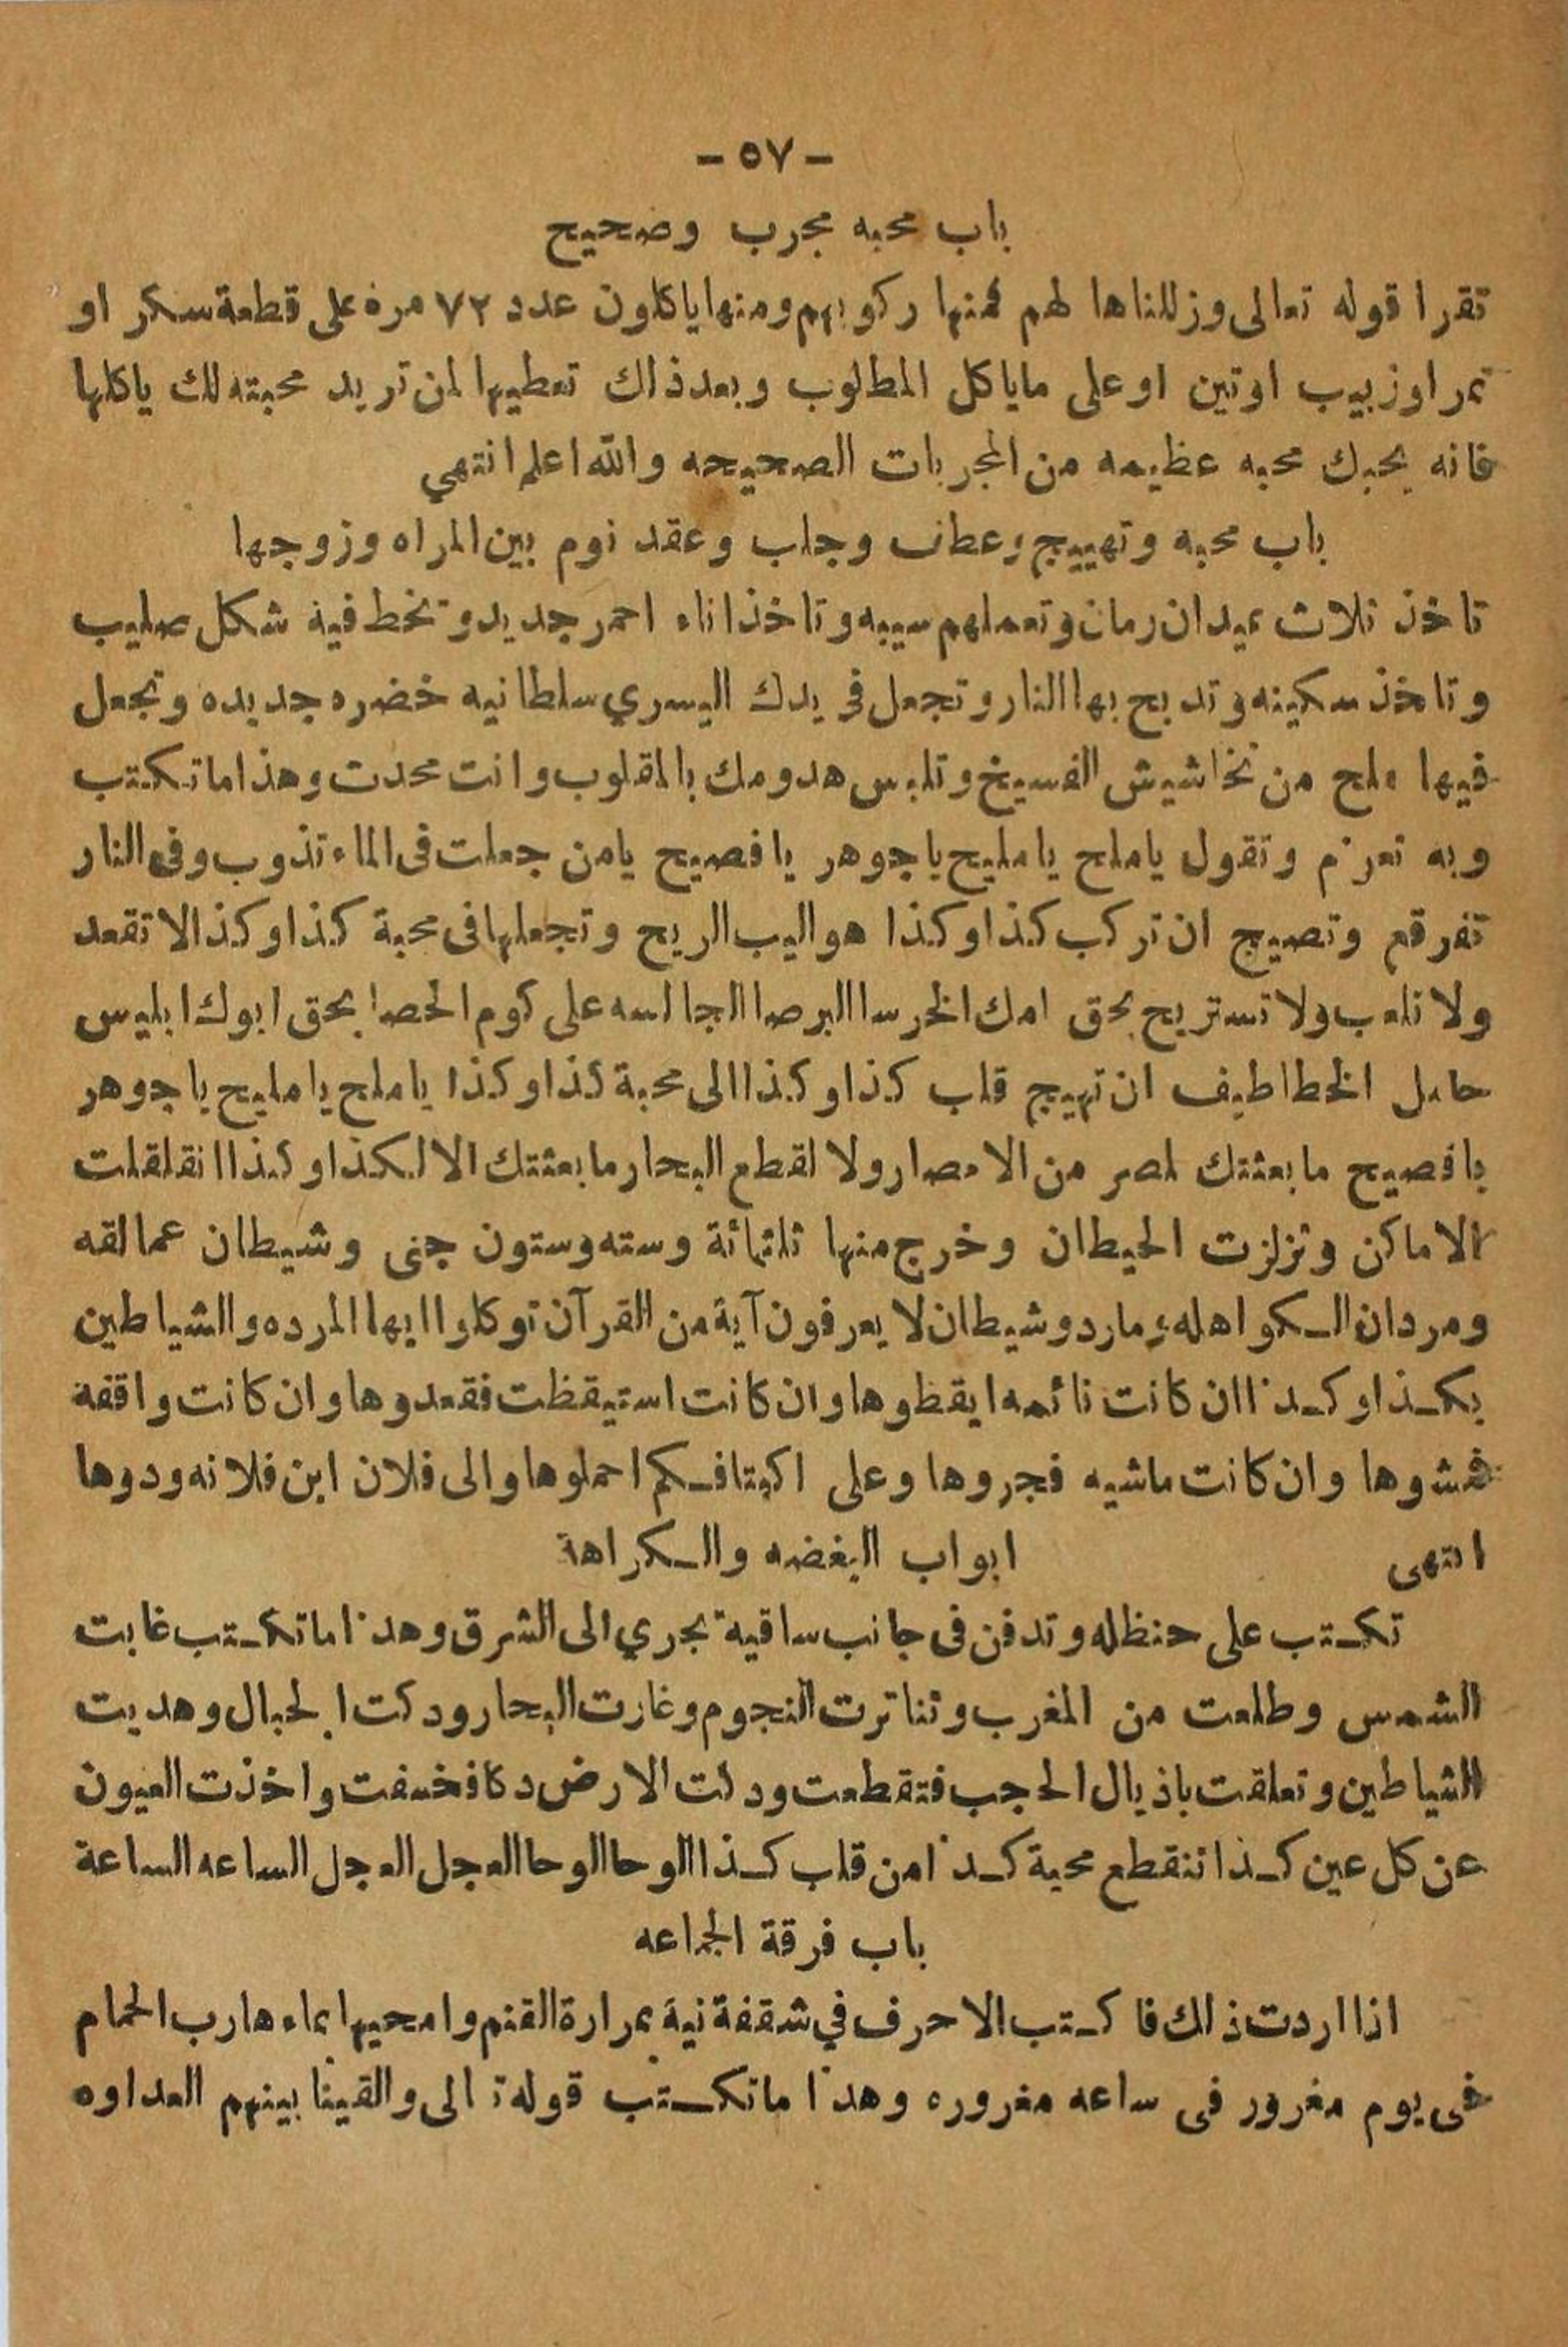 - ٥٧ -
باب محبه مجرب وصحيح
تقرا قوله تعالى وزللناها لهم فمنها ركوبهم ومنها ياكلون عدد ٧٢ مره على قطعة سكر او
تمر اوزبيب اوتين او على ماياكل المطلوب وبعد ذاك تعطيها لمن تريد محبته لك ياكلها
فانه يحبك محبه عظيمه من المجربات الصحيحه والله اعلم انتهي
باب محبه وتهييج وعطف وجلب وعقد نوم بين المراه وزوجها
تاخذ ثلاث عيدان رمان وتعملهم سيبه وتاخذ اناء احمر جديد وتخط فية شكل صليب
وتاخذ سكينه وتدبح بها النار وتجعل فى يدك اليسري سلطانيه خضره جديده وتجعل
فيها ملح من نخاشيش الفسيخ وتلبس هدومك بالمقلوب وانت محدث وهذا ماتكتب
وبه تعزم وتقول ياملح يامليح ياجوهر يافصيح يامن جعلت فى الماء تذوب وفى النار
تفرقع وتصيح ان تركب كذا وكذا هواليب الريح وتجعلها فى محبة كذا وكذا لاتقعد
ولا تلعب ولا تستريح بحق امك الخرسا البرصا الجالسه على كوم الحصا بحق ابوك ابليس
حامل الخطاطيف ان تهيج قلب كذا وكذا الى محبة كذا وكذا ياملح يامليح ياجوهر
يافصيح مابعثتك لمصر من الامصار ولا لقطع البحار مابعثتك الا لكذا وكذا انقلقلت
الاماكن وتزلزت الحيطان وخرج منها ثلثمائة وسته وستون جنى وشيطان عمالقه
ومردان الكواهله مارد وشيطان لا يعرفون آية من القرآن توكلوا ايها المرده والشياطين
بكذا وكذا ان كانت نائمه ايقظوها وان كانت استيقظت فقعدوها وان كانت واقفة
فمشوها وان كانت ماشيه فجروها وعلى اكتافكم احملوها والى فلان ابن فلانه ودوها
انتهى ابواب البغضه والكراهة
تكتب على حنظله وتدفن فى جانب ساقية تجري الى الشرق وهذا ماتكتب غابت
الشمس وطلعت من المغرب وتناثرت النجوم وغارت البحار ودكت الجبال وهديت
الشياطين وتعلقت باذيال الحجب فتقطعت ودكت الارض دكا فخسفت واخذت العيون
عن كل عين كذا تنقطع محبة كذا من قلب كذا الوحا الوحا العجل العجل الساعه الساعة
باب فرقة الجماعه
اذا اردت ذلك فاكتب الاحرف في شقفة نية بمرارة الغنم وامحيها بماء هارب الحمام
فى يوم مغرور فى ساعه مغروره وهذا ماتكتب قوله تعالى والقينا بينهم العداوه